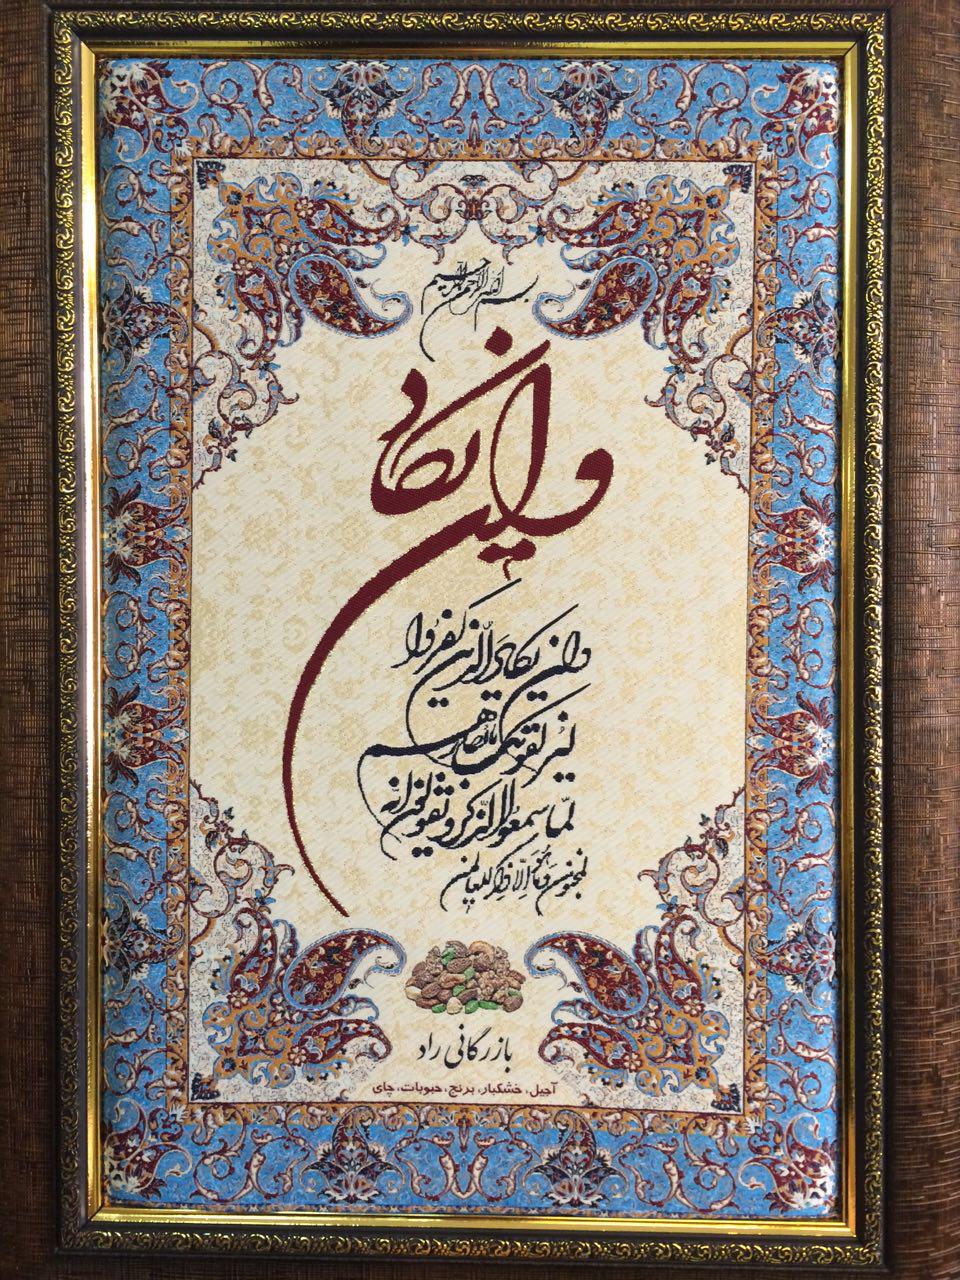 بسم الله الرحمن الرحیم
وان یکاد
وان یکاد الذین کفروا
لیزلقونک بابصارهم
لمّا سمعوا الذّکر و یقولون انه
لمجنون و ما هو الّا ذکر للعالمین
بازرگانی راد
آجیل، خشکبار، برنج، حبوبات، چای